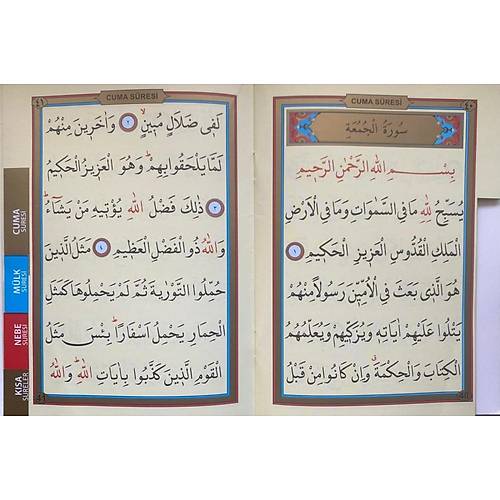 CUMA SÛRESİ
٤٠
سُورَةُ الْجُمُعَةِ
بِسْمِ اللهِ الرَّحْمٰنِ الرَّحِيمِ
يُسَبِّحُ لِلهِ مَا فِي السَّمٰوَاتِ وَمَا فِي الْاَرْضِ
الْمَلِكِ الْقُدُّوسِ الْعَزِيزِ الْحَكِيمِ ١
هُوَ الَّذِي بَعَثَ فِي الْاُمِّيّٖنَ رَسُولًا مِنْهُمْ
يَتْلُوا عَلَيْهِمْ اٰيَاتِهٖ وَيُزَكّٖيهِمْ وَيُعَلِّمُهُمُ
الْكِتَابَ وَالْحِكْمَةَ وَاِنْ كَانُوا مِنْ قَبْلُ
CUMA SÛRESİ
٤١
لَفٖي ضَلَالٍ مُبٖينٍ ٢ وَاٰخَرٖينَ مِنْهُمْ
لَمَّا يَلْحَقُوا بِهِمْ وَهُوَ الْعَزٖيزُ الْحَكٖيمُ
٣ ذٰلِكَ فَضْلُ اللهِ يُؤْتٖيهِ مَنْ يَشَاءُ
وَاللهُ ذُو الْفَضْلِ الْعَظٖيمِ ٤ مَثَلُ الَّذٖينَ
حُمِّلُوا التَّوْرٰيةَ ثُمَّ لَمْ يَحْمِلُوهَا كَمَثَلِ
الْحِمَارِ يَحْمِلُ اَسْفَارًا بِئْسَ مَثَلُ
الْقَوْمِ الَّذٖينَ كَذَّبُوا بِاٰيَاتِ اللهِ وَاللهُ
41
CUMA
SÛRESİ
MÜLK
SÛRESİ
NEBE
SÛRESİ
KISA
SÛRELER